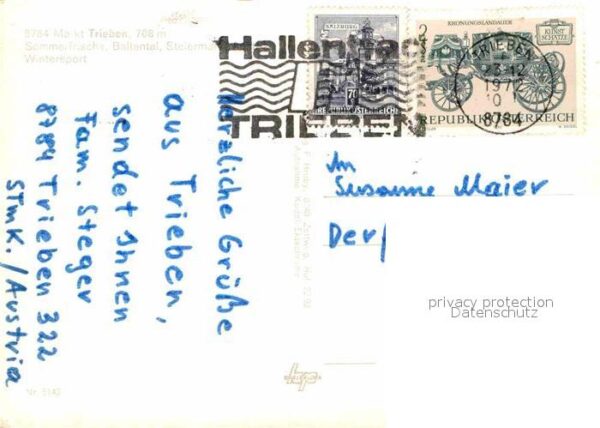 8784 Markt Trieben, 708 m
Sommerfrische, Paltental, Steierma
Wintersport
Herzliche Grüße
aus Trieben,
sendet Ihnen
Fam. Steger
8784 Trieben 322
STmK. / Austria
Nr. 5143
SALZBURG
70
REPUBLIK ÖSTERREICH
2
KRÖNUNGSLANDAUER
KUNST
SCHÄTZE
REPUBLIK ÖSTERREICH
Hallen
TRIEBEN
TRIEBEN
8784
An
Susanne Maier
Der
privacy protection
Datenschutz